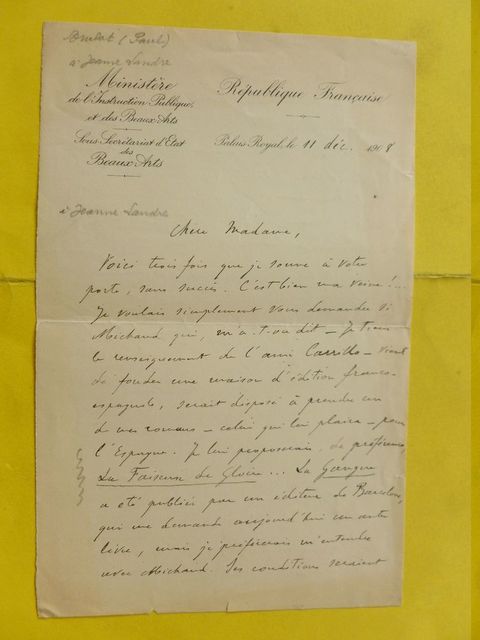 Brulat (Paul)
à Jeanne Landre
Ministère
de l'Instruction Publique
et des Beaux-Arts
Sous-Secrétariat d'Etat
des
Beaux-Arts
République Française
Palais-Royal, le 11 déc. 1908
à Jeanne Landre
Chère Madame,
Voici trois fois que je sonne à votre
porte, sans succès. C'est bien ma veine !...
Je voulais simplement vous demander si
Michaud qui, m'a-t-on dit – Je tiens
le renseignement de l'ami Carrillo – vient
de fonder une maison d'édition franco-
espagnole, serait disposé à prendre un
de mes romans – celui qui lui plaira – pour
l'Espagne. Je lui proposerais, de préférence,
La Faiseuse de Gloire... La Gangue
a été publiée par un éditeur de Barcelone,
qui me demande aujourd'hui un autre
livre, mais je préférerais m'entendre
avec Michaud. Ses conditions seraient